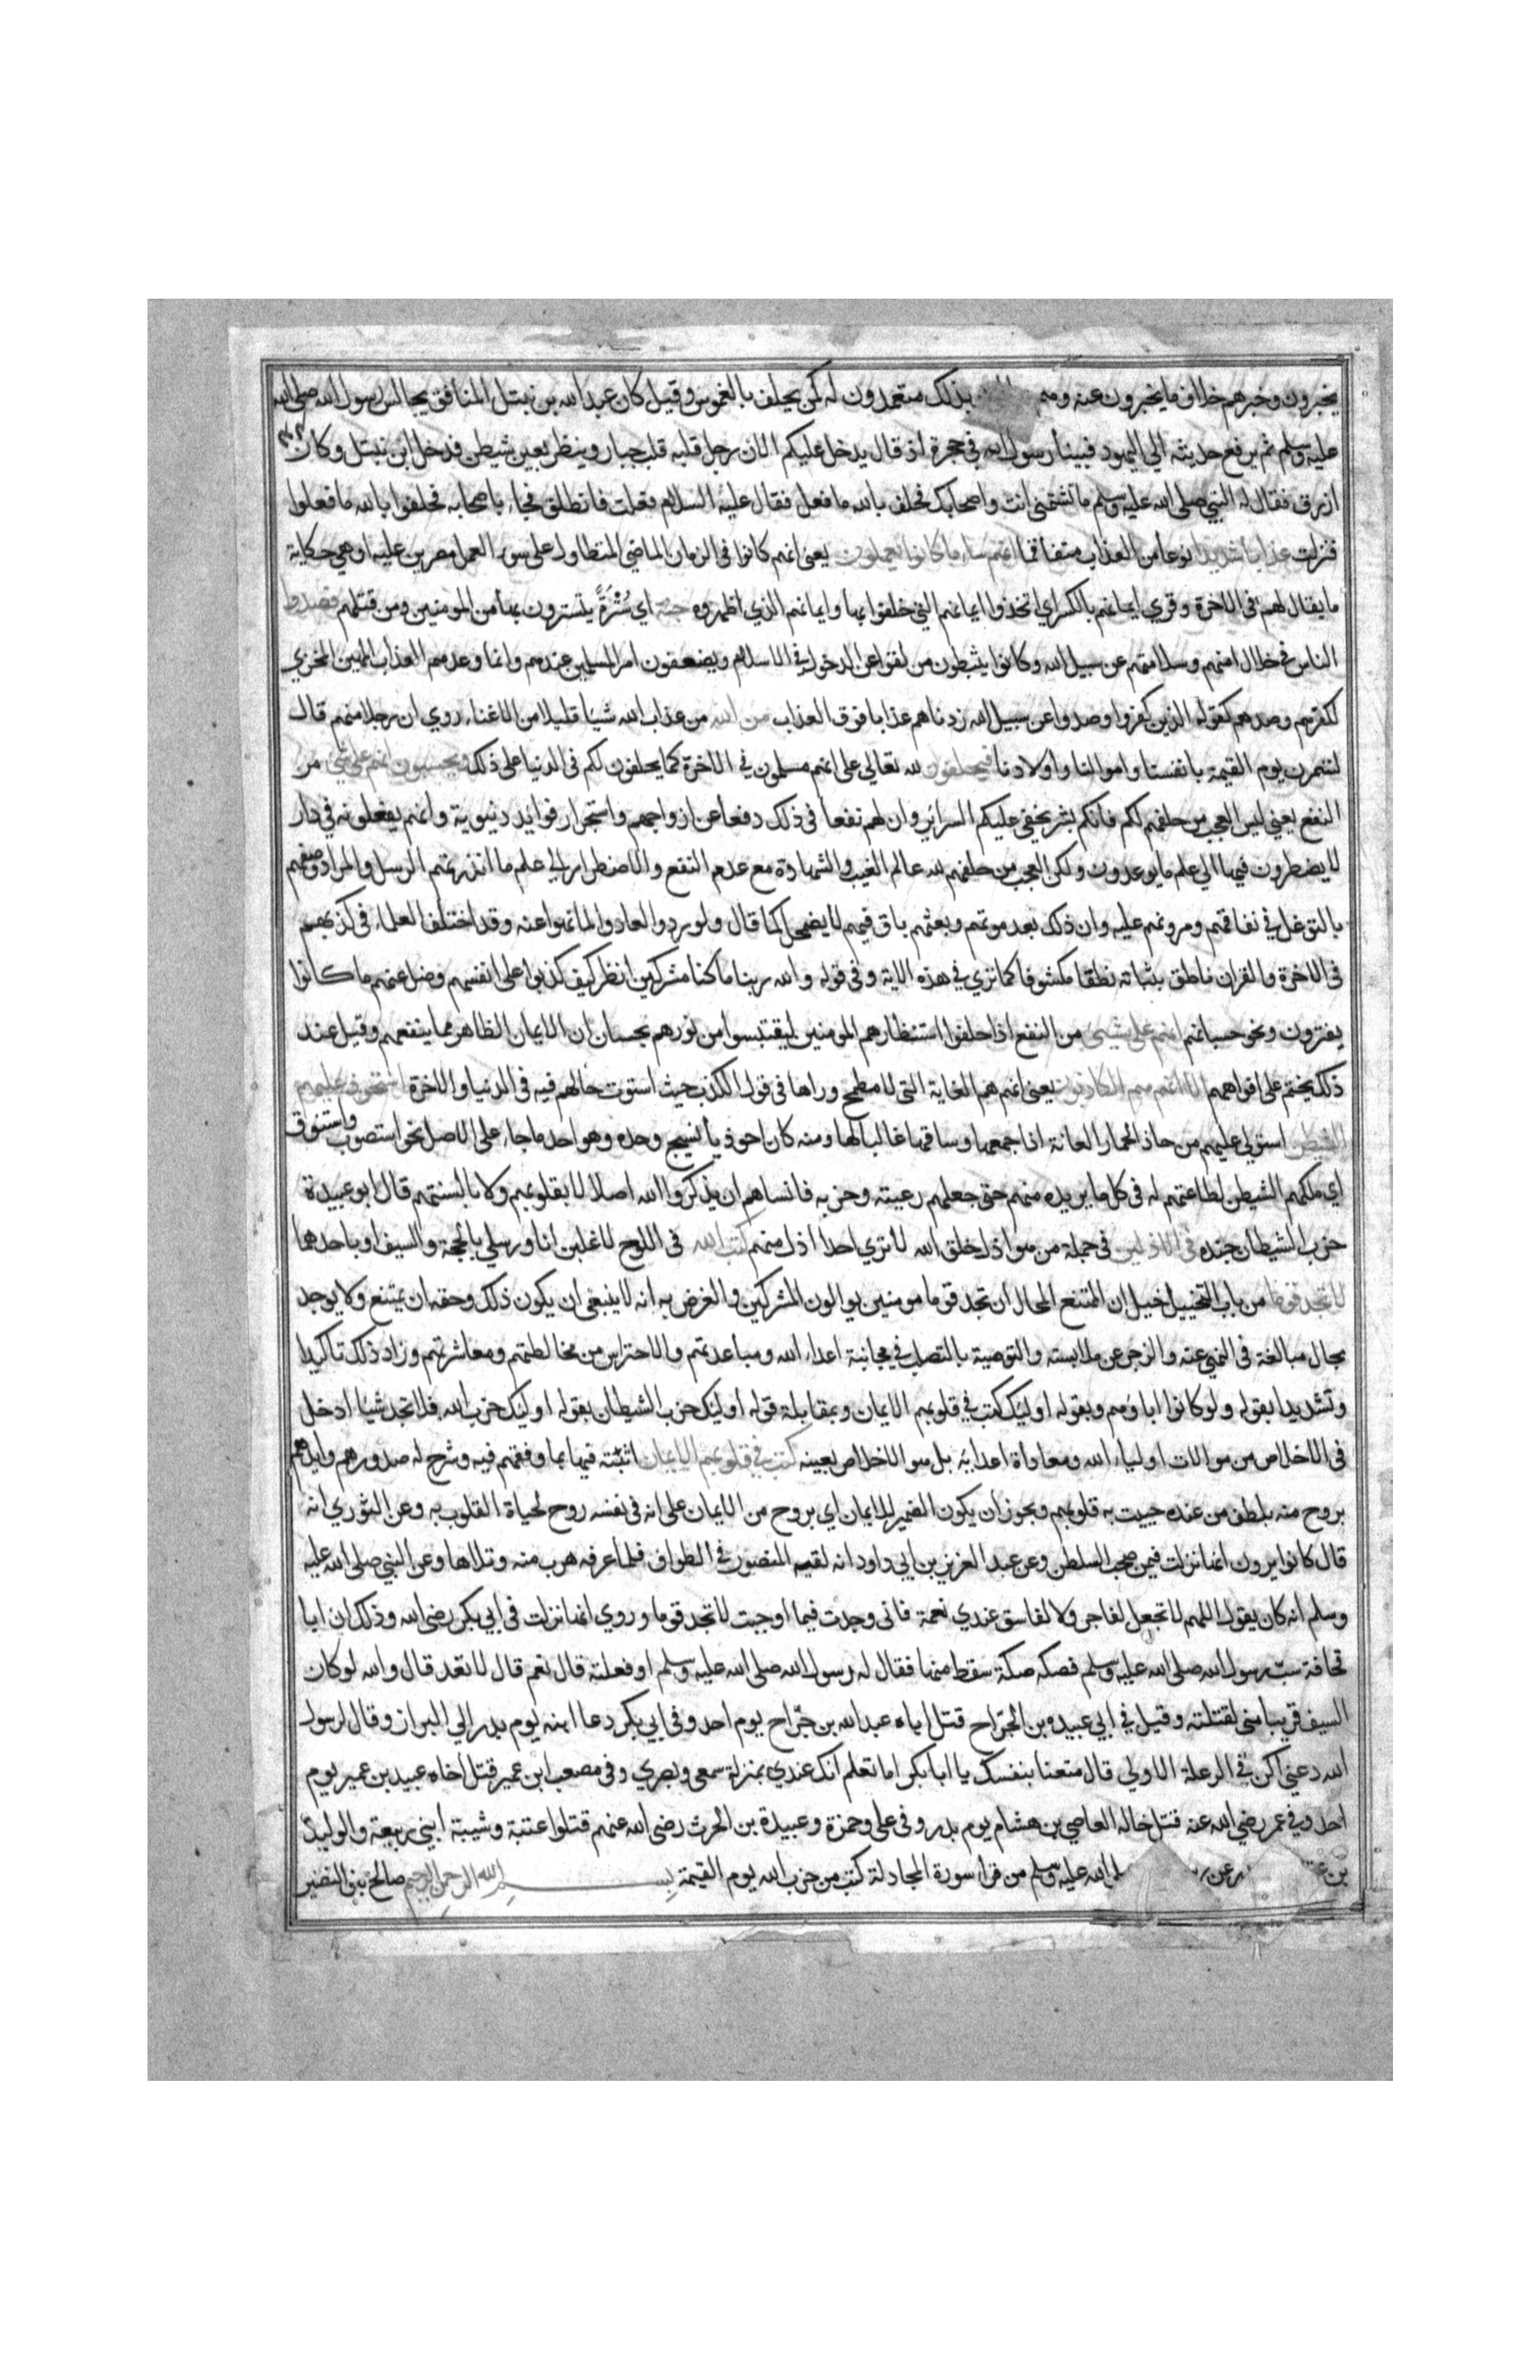 يخبرون وخبرهم خلاف ما يخبرون عنه وهم بذلك متعمدون له كمن يحلف بالغموس وقيل كان عبد الله بن نبتل المنافق يجالس رسول الله صلى الله
عليه وسلم ثم يرفع حديثه الي اليهود فبينا رسول الله في حجرة اذ قال يدخل عليكم الان رجل قلبه قلب جبار وينظر بعين شيطن فدخل ابن نبتل وكان
ازرق فقال له النبي صلى الله عليه وسلم ما تشتمني انت واصحابك فحلف بالله ما فعل فقال عليه السلام فعلت فانطلق فجاء باصحابه فحلفوا بالله ما فعلوا
فنزلت عذابا شديدا نوعا من العذاب متفاقما انهم ساء ما كانوا يعملون يعني انهم كانوا في الزمان الماضي المتطاول على سوء العمل مصرين عليه او هي حكاية
ما يقال لهم في الاخرة وقري ايمانهم بالكسر اي اتخذوا ايمانهم التي حلفوا بها وايمانهم الذي اظهروه جنة اي سُتْرَةً يتسترون بها من المومنين ومن قتلهم فصدوا
الناس في خلال امنهم وسلامتهم عن سبيل الله وكانوا يثبطون من لقوا عن الدخول في الاسلام ويضعفون امر المسلمين عندهم وانما وعدهم العذاب المهين المخزي
لكفرهم وصدهم كقوله الذين كفروا وصدوا عن سبيل الله زدناهم عذابا فوق العذاب من الله من عذاب الله شيا قليلا من الاغناء روي ان رجلا منهم قال
لننصرن يوم القيمة بانفسنا واموالنا واولادنا فيحلفون لله تعالي على انهم مسلمون في الاخرة كما يحلفون لكم في الدنيا على ذلك ويحسبون انهم على شي من
النفع يعني ليس العجب من حلفهم لكم فانكم بشر يخفي عليكم السرائر وان لهم نفعا في ذلك دفعا عن ارواحهم واستجرار فوائد دنيوية وانهم يفعلونه في دار
لا يضطرون فيها الي علم ما يوعدون ولكن العجب من حلفهم لله عالم الغيب والشهادة مع عدم النفع والاضطرار الي علم ما انذرتهم الرسل والمراد وصفهم
بالتوغل في نفاقهم ومرونهم عليه وان ذلك بعد موتهم وبعثهم باق فيهم لا يضمحل كما قال ولو ردوا لعادوا لما نهوا عنه وقد اختلف العلماء في كذبهم
في الاخرة والقران ناطق بثباته نطقا مكشوفا كما تري في هذه الاية وفي قوله والله ربنا ما كنا مشركين انظر كيف كذبوا على انفسهم وضل عنهم ما كانوا
يفترون ونحو حسبانهم انهم على شي من النفع اذا حلفوا استنظارهم المومنين ليقتبسوا من نورهم بحسبان ان الايمان الظاهر مما ينفعهم وقيل عند
ذلك يختم على افواههم الا انهم هم الكاذبون يعني انهم هم الغاية التي لا مطمح وراها في قول الكذب حيث استوت حالهم فيه في الدنيا والاخرة استحوذ عليهم
الشيطن استولي عليهم من حاذ الحمار العانة اذا جمعها وساقها غالبا لها ومنه كان احوذيا نسيج وحده وهو احد ما جاء على الاصل نحو استصوب واستنوق
اي ملكهم الشيطن لطاعتهم له في كل ما يريده منهم حتى جعلهم رعيته وحزبه فانساهم ان يذكروا الله اصلا لا بقلوبهم ولا بالسنتهم قال ابو عبيدة
حزب الشيطان جنده في الاذلين في جملة من هو اذل خلق الله لا تري احدا اذل منهم كتب الله في اللوح لاغلبن انا ورسلي بالحجة والسيف او باحدهما
لا تجد قوما من باب التخييل خيل ان الممتنع المحال ان تجد قوما مومنين يوالون المشركين والغرض به انه لا ينبغي ان يكون ذلك وحقه ان يمتنع ولا يوجد
بحال مبالغة في النهي عنه والزجر عن ملابسته والتوصية بالتصلب في مجانبة اعداء الله ومباعدتهم والاحتراس من مخالطتهم ومعاشرتهم وزاد ذلك تاكيدا
وتشديدا بقوله ولو كانوا اباؤهم وبقوله اولئك كتب في قلوبهم الايمان وبمقابلة قوله اولئك حزب الشيطان بقوله اولئك حزب الله فلا تجد شيا ادخل
في الاخلاص من موالات اولياء الله ومعاداة اعدائه بل هو الاخلاص بعينه كتب في قلوبهم الايمان اثبته فيها بما وفقهم فيه وشرح له صدورهم وايدهم
بروح منه بلطف من عنده حييت به قلوبهم ويجوز ان يكون الضمير للايمان اي بروح من الايمان على انه في نفسه روح لحياة القلوب به وعن الثوري انه
قال كانوا يرون انها نزلت فيمن صحب السلطن وعن عبد العزيز بن ابي داود انه لقيه المنصور في الطواف فلما عرفه هرب منه وتلاها وعن النبي صلى الله عليه
وسلم انه كان يقول اللهم لا تجعل لفاجر ولا لفاسق عندي نعمة فاني وجدت فيما اوحيت لا تجد قوما وروي انها نزلت في ابي بكر رضي الله وذلك ان ابا
قحافة سبّ رسول الله صلى الله عليه وسلم فصكه صكة سقط منها فقال له رسول الله صلى الله عليه وسلم او فعلته قال نعم قال لا تعد قال والله لو كان
السيف قريبا مني لقتلته وقيل في ابي عبيدة بن الجراح قتل اباه عبد الله بن جراح يوم احد وفي ابي بكر دعا ابنه يوم بدر الي البراز وقال لرسول
الله دعني اكن في الرعلة الاولي قال متعنا بنفسك يا ابا بكر اما تعلم انك عندي بمنزلة سمعي وبصري وفي مصعب ابن عمير قتل اخاه عبيد بن عمير يوم
احد وفي عمر رضي الله عنه قتل خاله العاصي بن هشام يوم بدر وفي على وحمزة وعبيدة بن الحرث رضي الله عنهم قتلوا عتبة وشيبة ابني ربيعة والوليد
بن عن الله عليه وسلم من قرا سورة المجادلة كتب من حزب الله يوم القيمة بسم الله الرحمن الرحيم صالح بني النضير